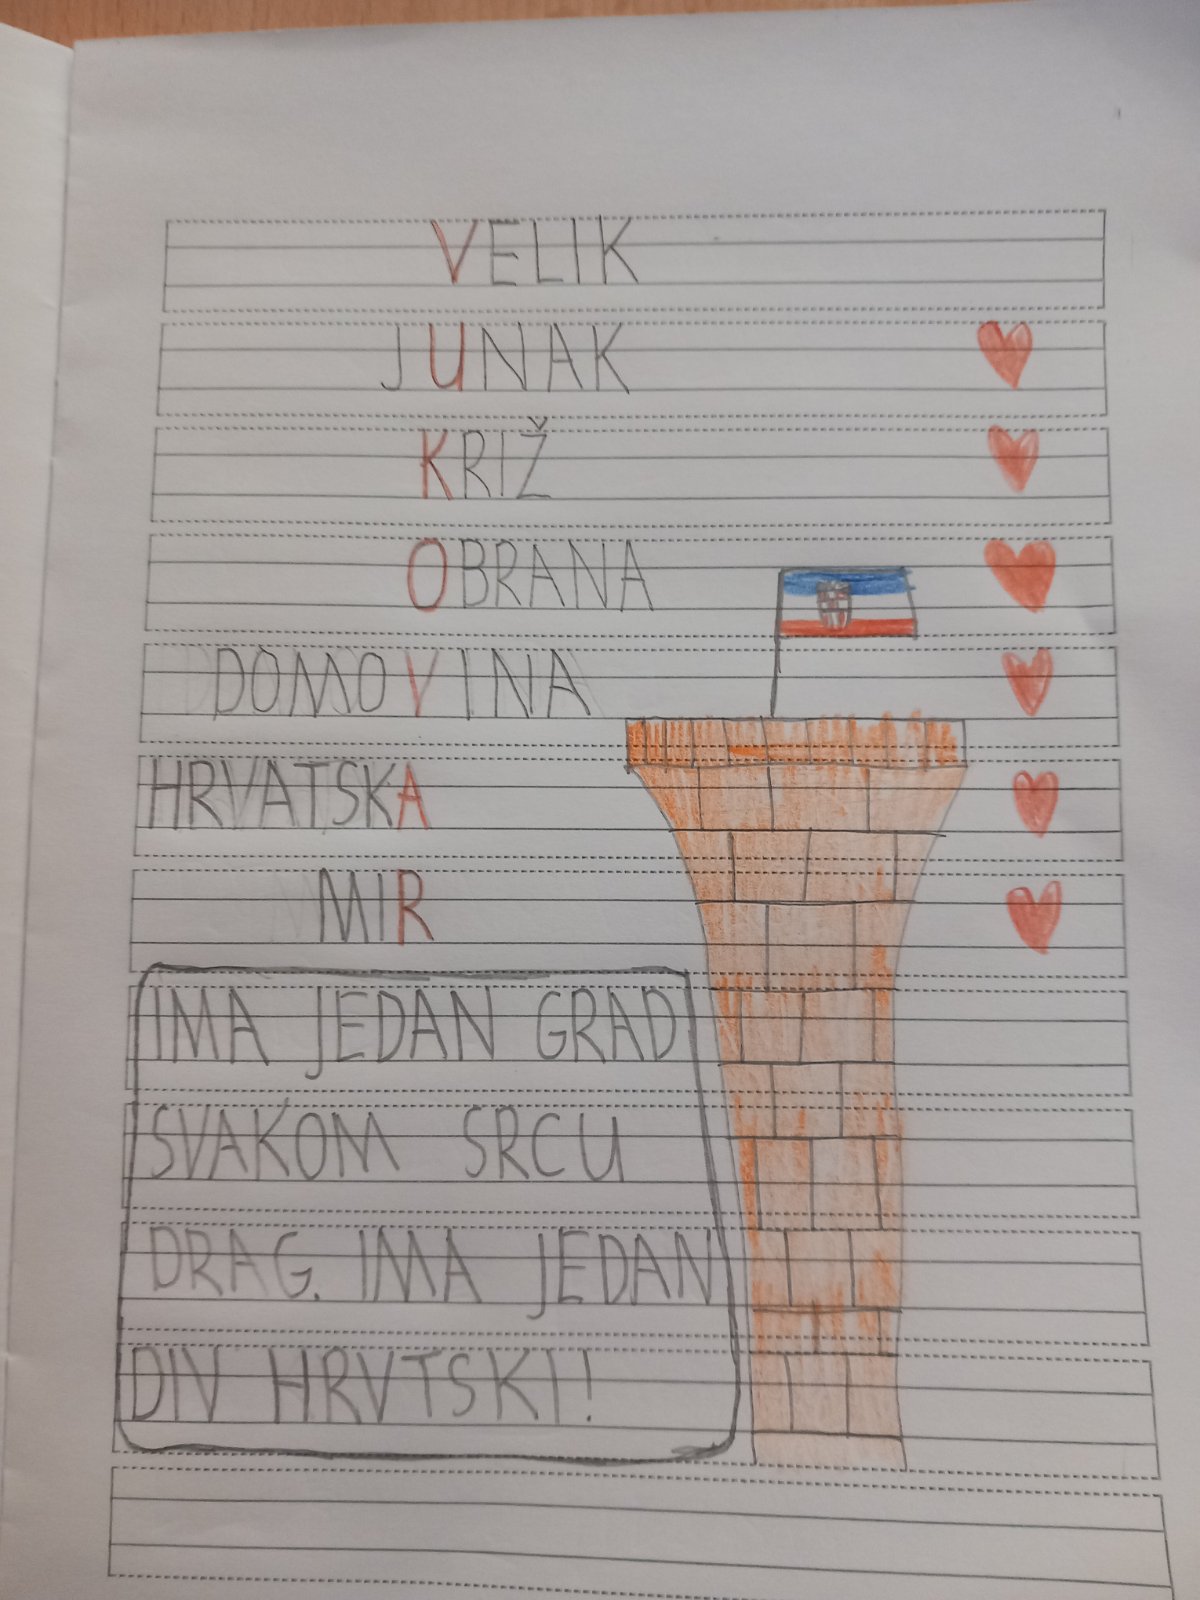 VELIK
JUNAK
KRIŽ
OBRANA
DOMOVINA
HRVATSKA
MIR
IMA JEDAN GRAD
SVAKOM SRCU
DRAG. IMA JEDAN
DIV HRVTSKI!